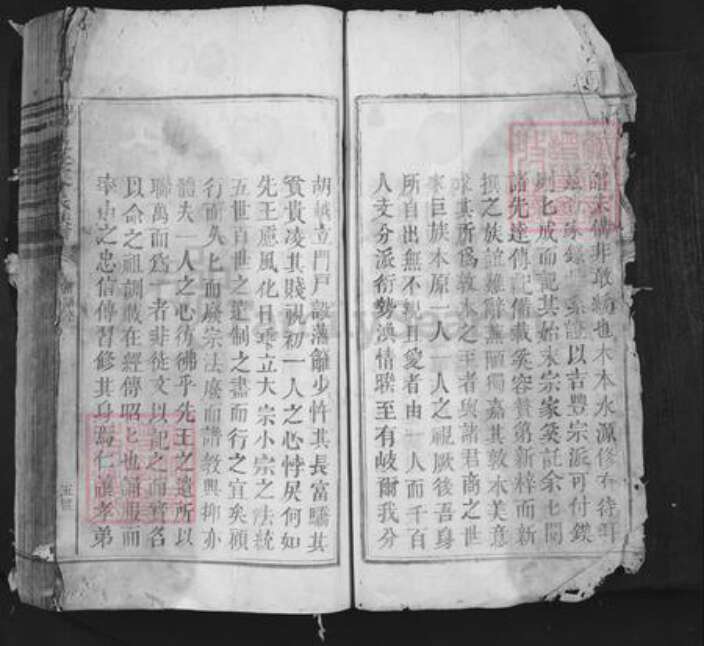 譜宋儒非敢緝也木本水源修有待明
家錄世系證以吉豐宗派可付鍥
則已成而記其始末宗家奚託余七閱
諸先達傳記備載奚容贅第新梓而新
撰之族誼難辭蕪陋獨嘉其敦本美意
求其所為敦本之王者與諸君商之世
李巨族本原一人一人之視厥後吾身
所自出無不親且愛者由一人而千百
人支分派衍勢渙情聯至有岐爾我分
胡越立門戶設藩籬少忤其長富驕其
貧貴凌其賤視初一人之心悖戾何如
先王慮風化日乖立大宗小宗之法統
五世百世之遺制之盡而行之宜矣頋
行而久乜而廢宗法廢而譜敎興抑亦
體夫一人之心彷彿乎先王之遺所以
聯萬而爲一者非徒文以記之而實名
以命之祖訓載在經傳昭乜也謂服而
率由之忠信傳習修其身焉仁讓孝弟